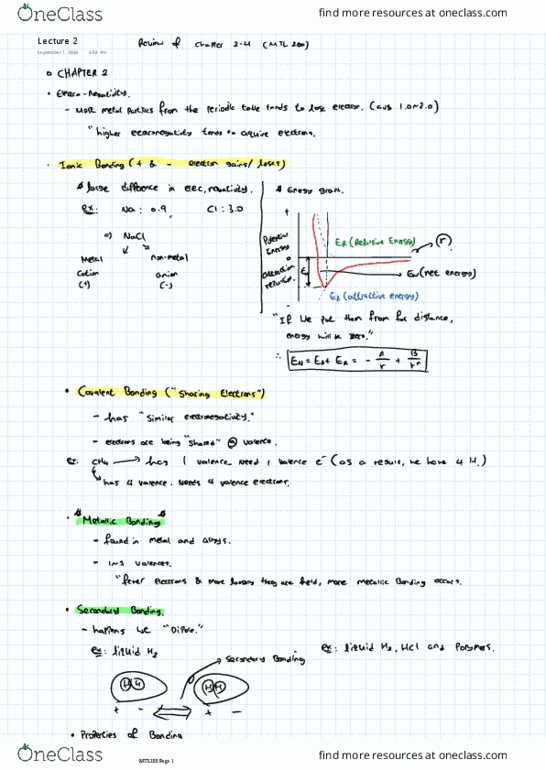 OneClass
find more resources at oneclass.com
Lecture 2
Review of Chapter 2-4 (MTL 200)
CHAPTER 2
- Most metal from the periodic table tends to lose electron. (
"higher electronegativity tends to aquire electrons.
Ionic Bonding (+ & - electron gains/loses)
large difference in
ex: Na: 0.9, Cl: 3.0
NaCl
Metal non-metal
Cation anion
(+) (-)
Energy graph.
+
Potential
Energy
0
attraction
ER (Repulsive Energy)
(r)
EN (net energy)
EA (attractive energy)
"If we put them from far distance,
energy will be zero."
∴ EN = EA + ER = - A/r + B/rⁿ
Covalent Bonding ("Sharing Electrons")
- has "similar electronegativity."
- electrons are being "shared" @ valence.
ex: CH4 → has 1 valence need 1 valence e⁻ (as a result, we have 4 H.)
has 4 valence. Needs 4 valence electrons.
Metallic Bonding
- found in metal and alloys.
- 1~3 valences.
"fewer electrons & more loosely they are held, more metallic Bonding occurs.
Secondary Bonding.
- happens "Dipole."
ex: liquid H2
ex: liquid H2, HCl and Polymers.
Secondary Bonding
H H H H
+ - + -
Properties of Bonding
MTL200 Page 1
OneClass
find more resources at oneclass.com